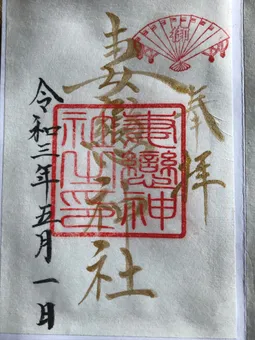 奉拝
妻戀神社
妻戀神
社之印
令和三年五月一日